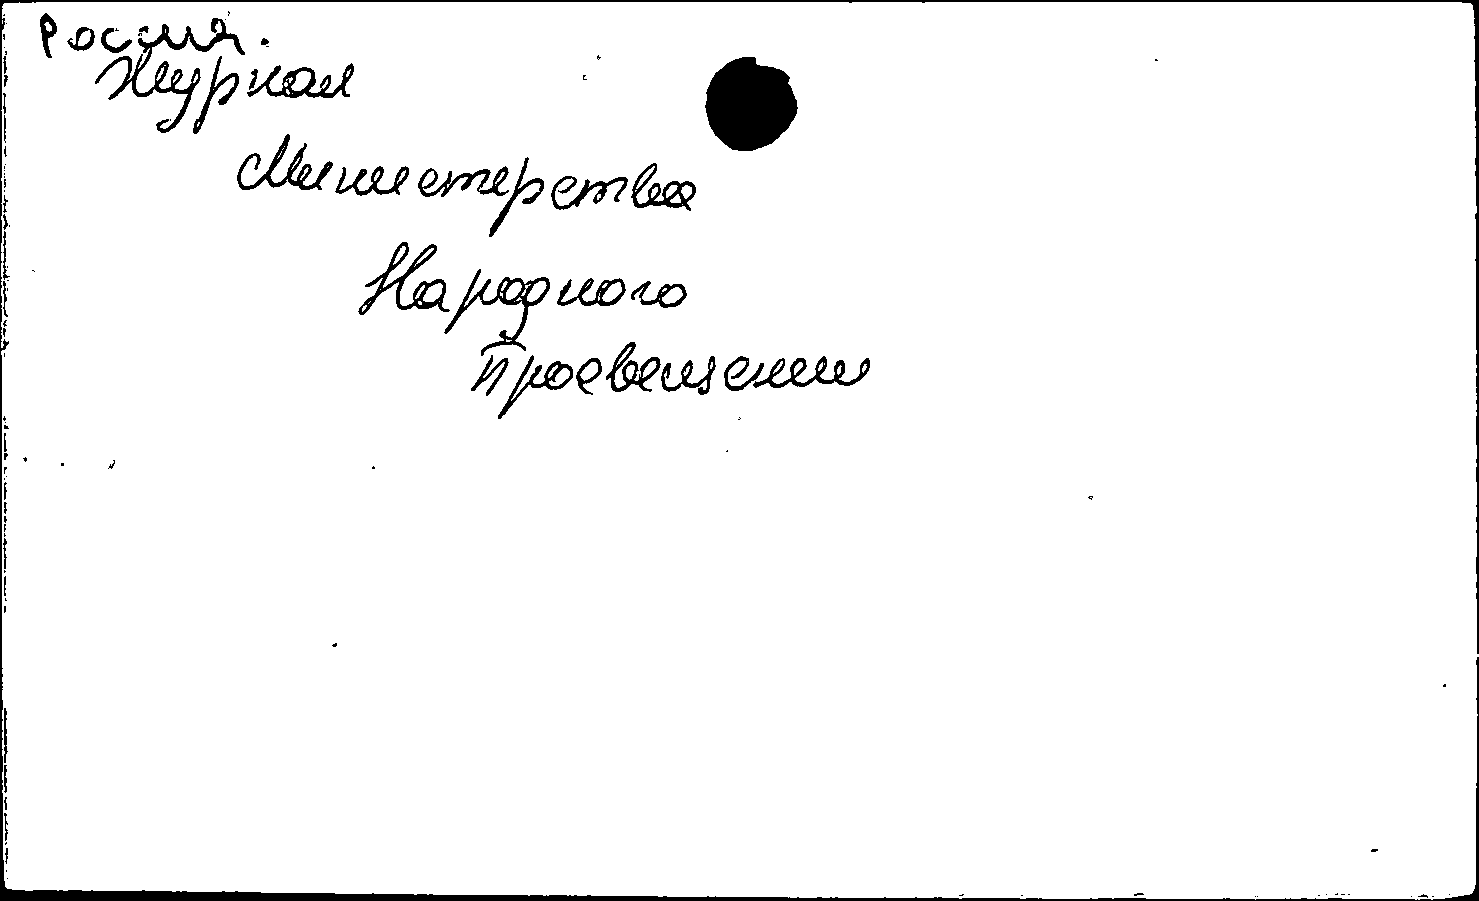 Россия.
Журнал
Министерства
Народного
Просвещения